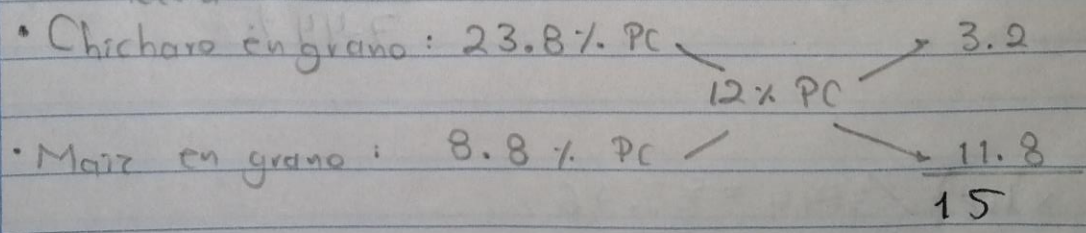 • Chicharo en grano: 23.8 % PC 3.2
12 % PC
• Maiz en grano: 8.8 % PC 11.8
15